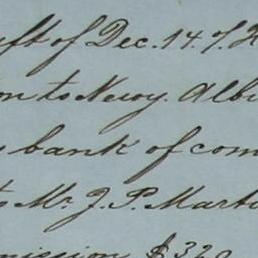 of Dec. 14. 7.
to Newy. Alb
bank of com
Mr J. P. Mart
mission $320